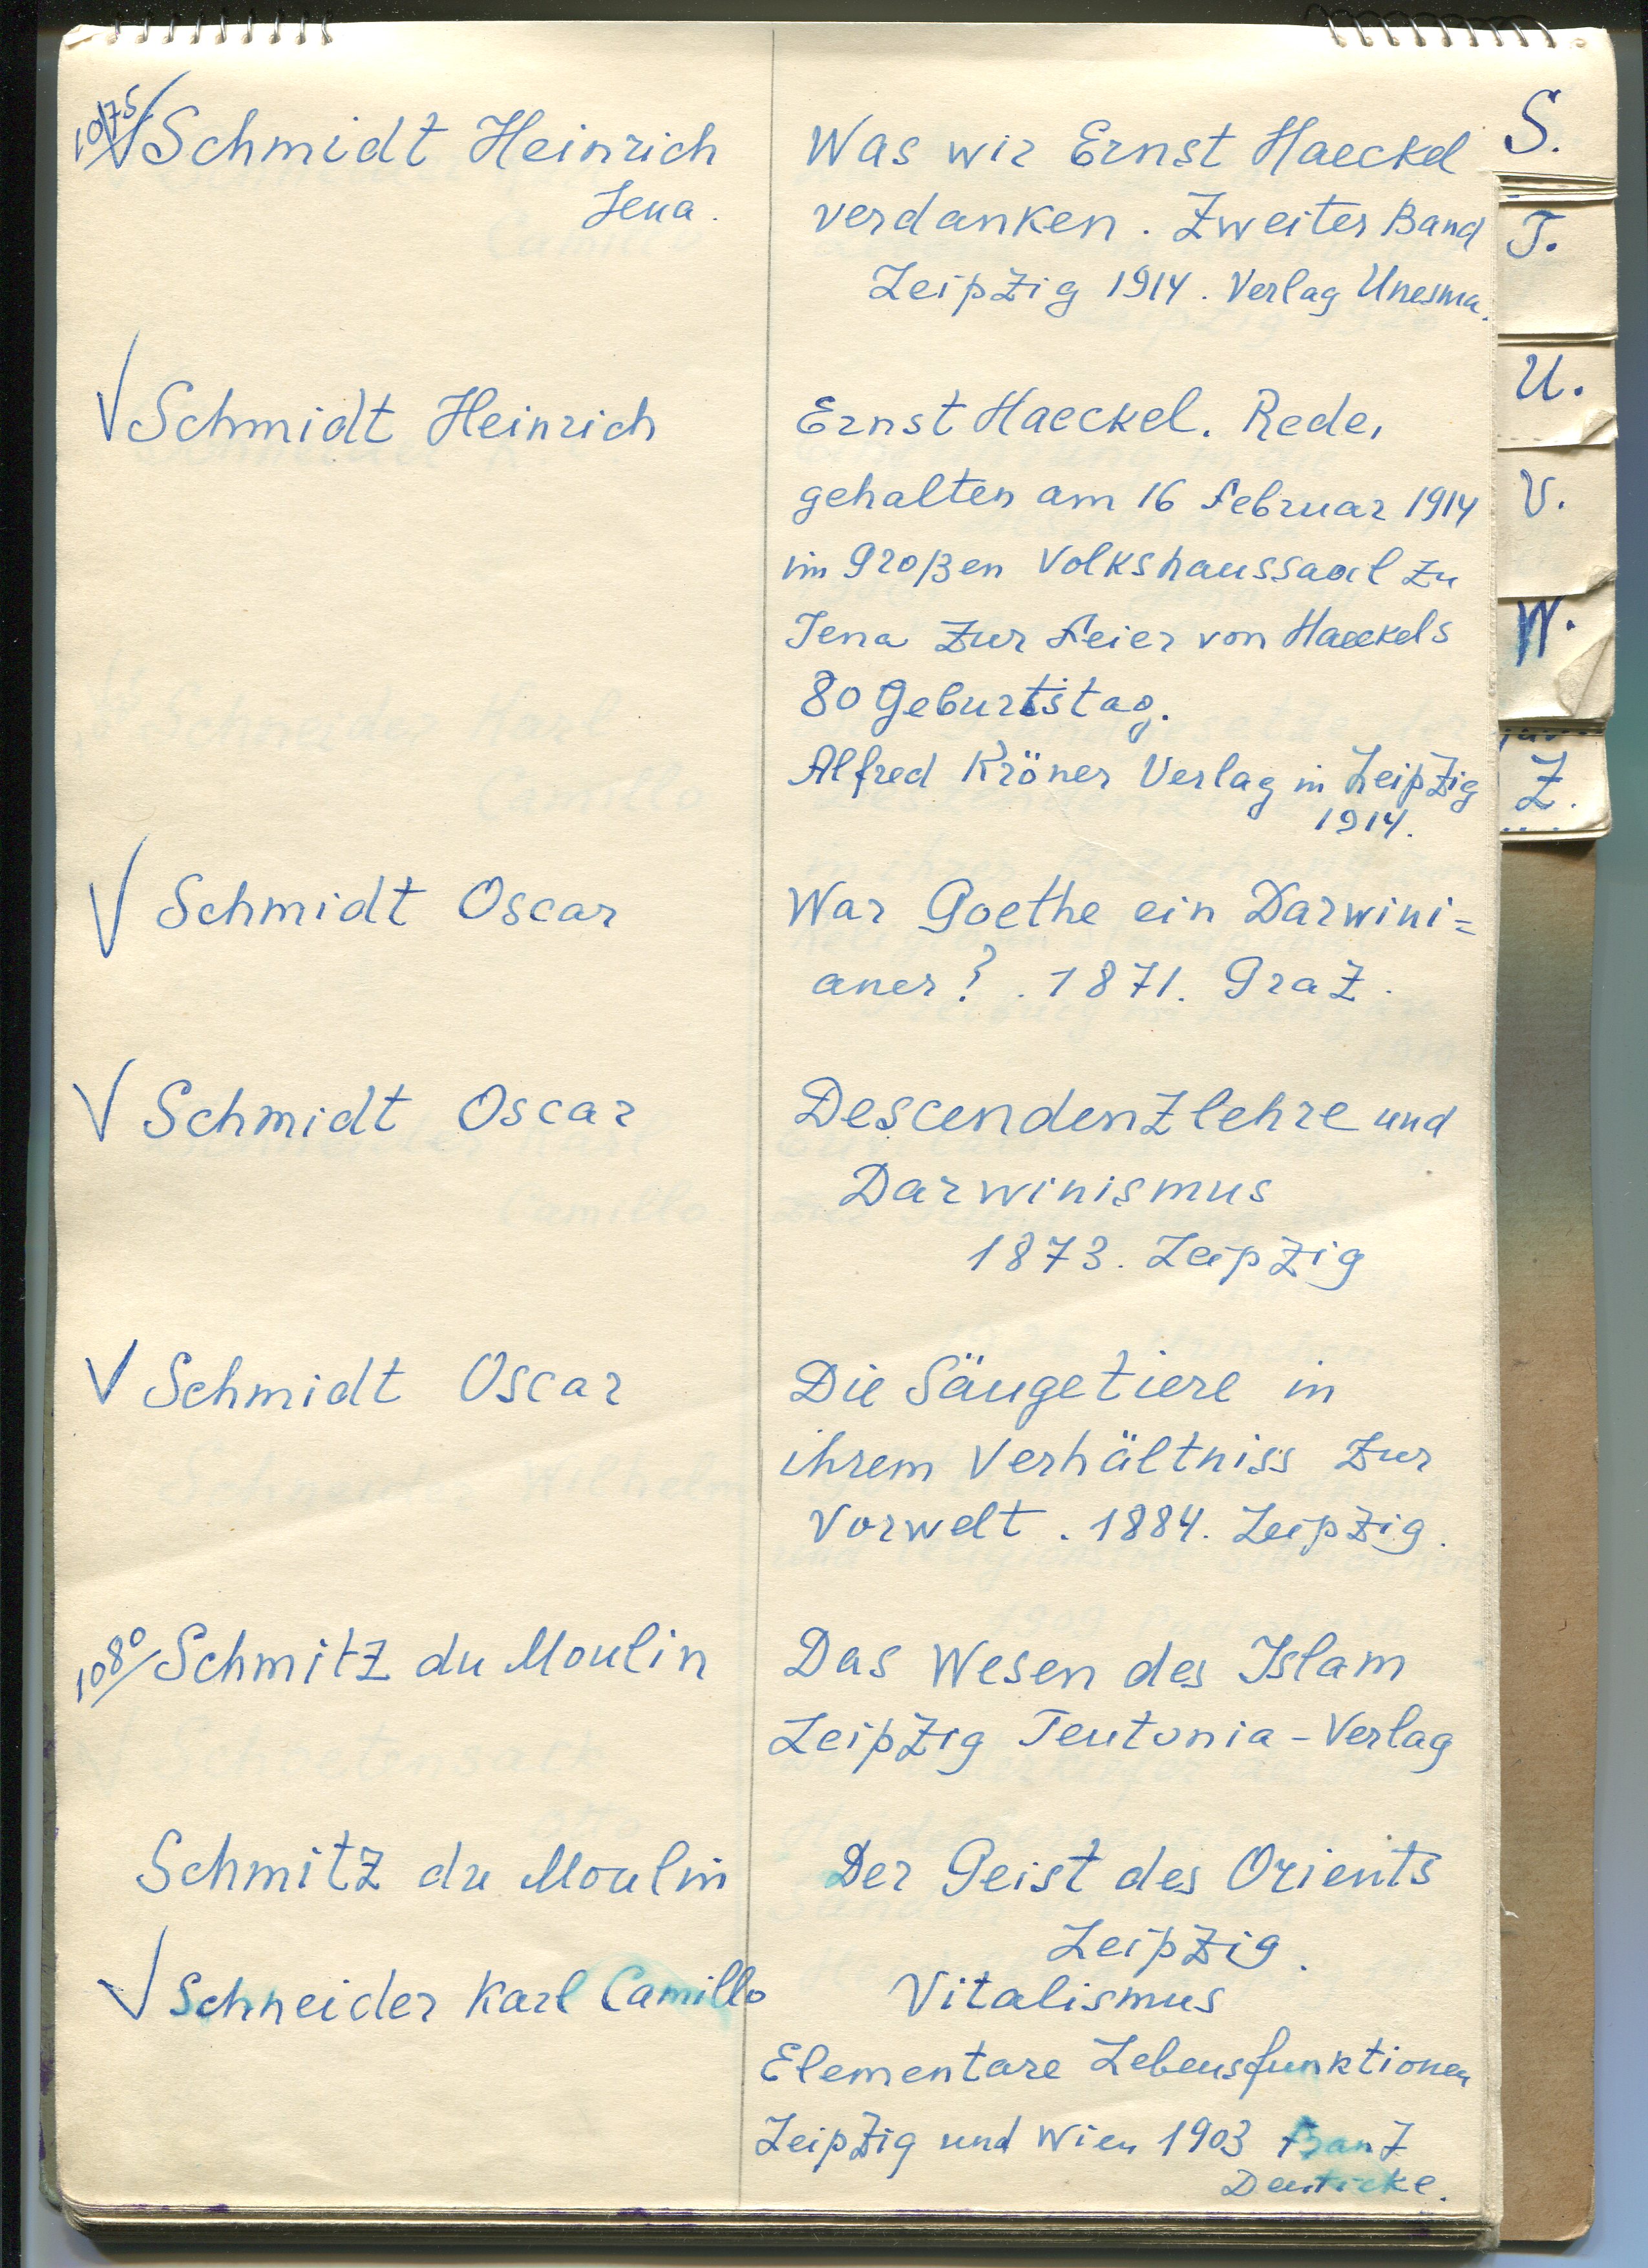 1075 √ Schmidt Heinrich
Jena.
Was wir Ernst Haeckel
verdanken. Zweiter Band
Leipzig 1914. Verlag Unesma.
√ Schmidt Heinrich
Ernst Haeckel. Rede,
gehalten am 16 Februar 1914
im Großen Volkshaussaal zu
Jena zur Feier von Haeckels
80 Geburtstag.
Alfred Kröner Verlag in Leipzig
1914.
√ Schmidt Oscar
War Goethe ein Darwini=
aner? . 1871. Graz.
√ Schmidt Oscar
Descendenzlehre und
Darwinismus
1873. Leipzig
√ Schmidt Oscar
Die Säugetiere in
ihrem Verhältniss zur
Vorwelt. 1884. Leipzig.
1080/ Schmitz du Moulin
Das Wesen des Islam
Leipzig Teutonia-Verlag
Schmitz du Moulin
Der Geist des Orients
Leipzig.
√ Schneider Karl Camillo
Vitalismus
Elementare Lebensfunktionen
Leipzig und Wien 1903 Franz
Deuticke.
S.
T.
U.
V.
W.
Z.